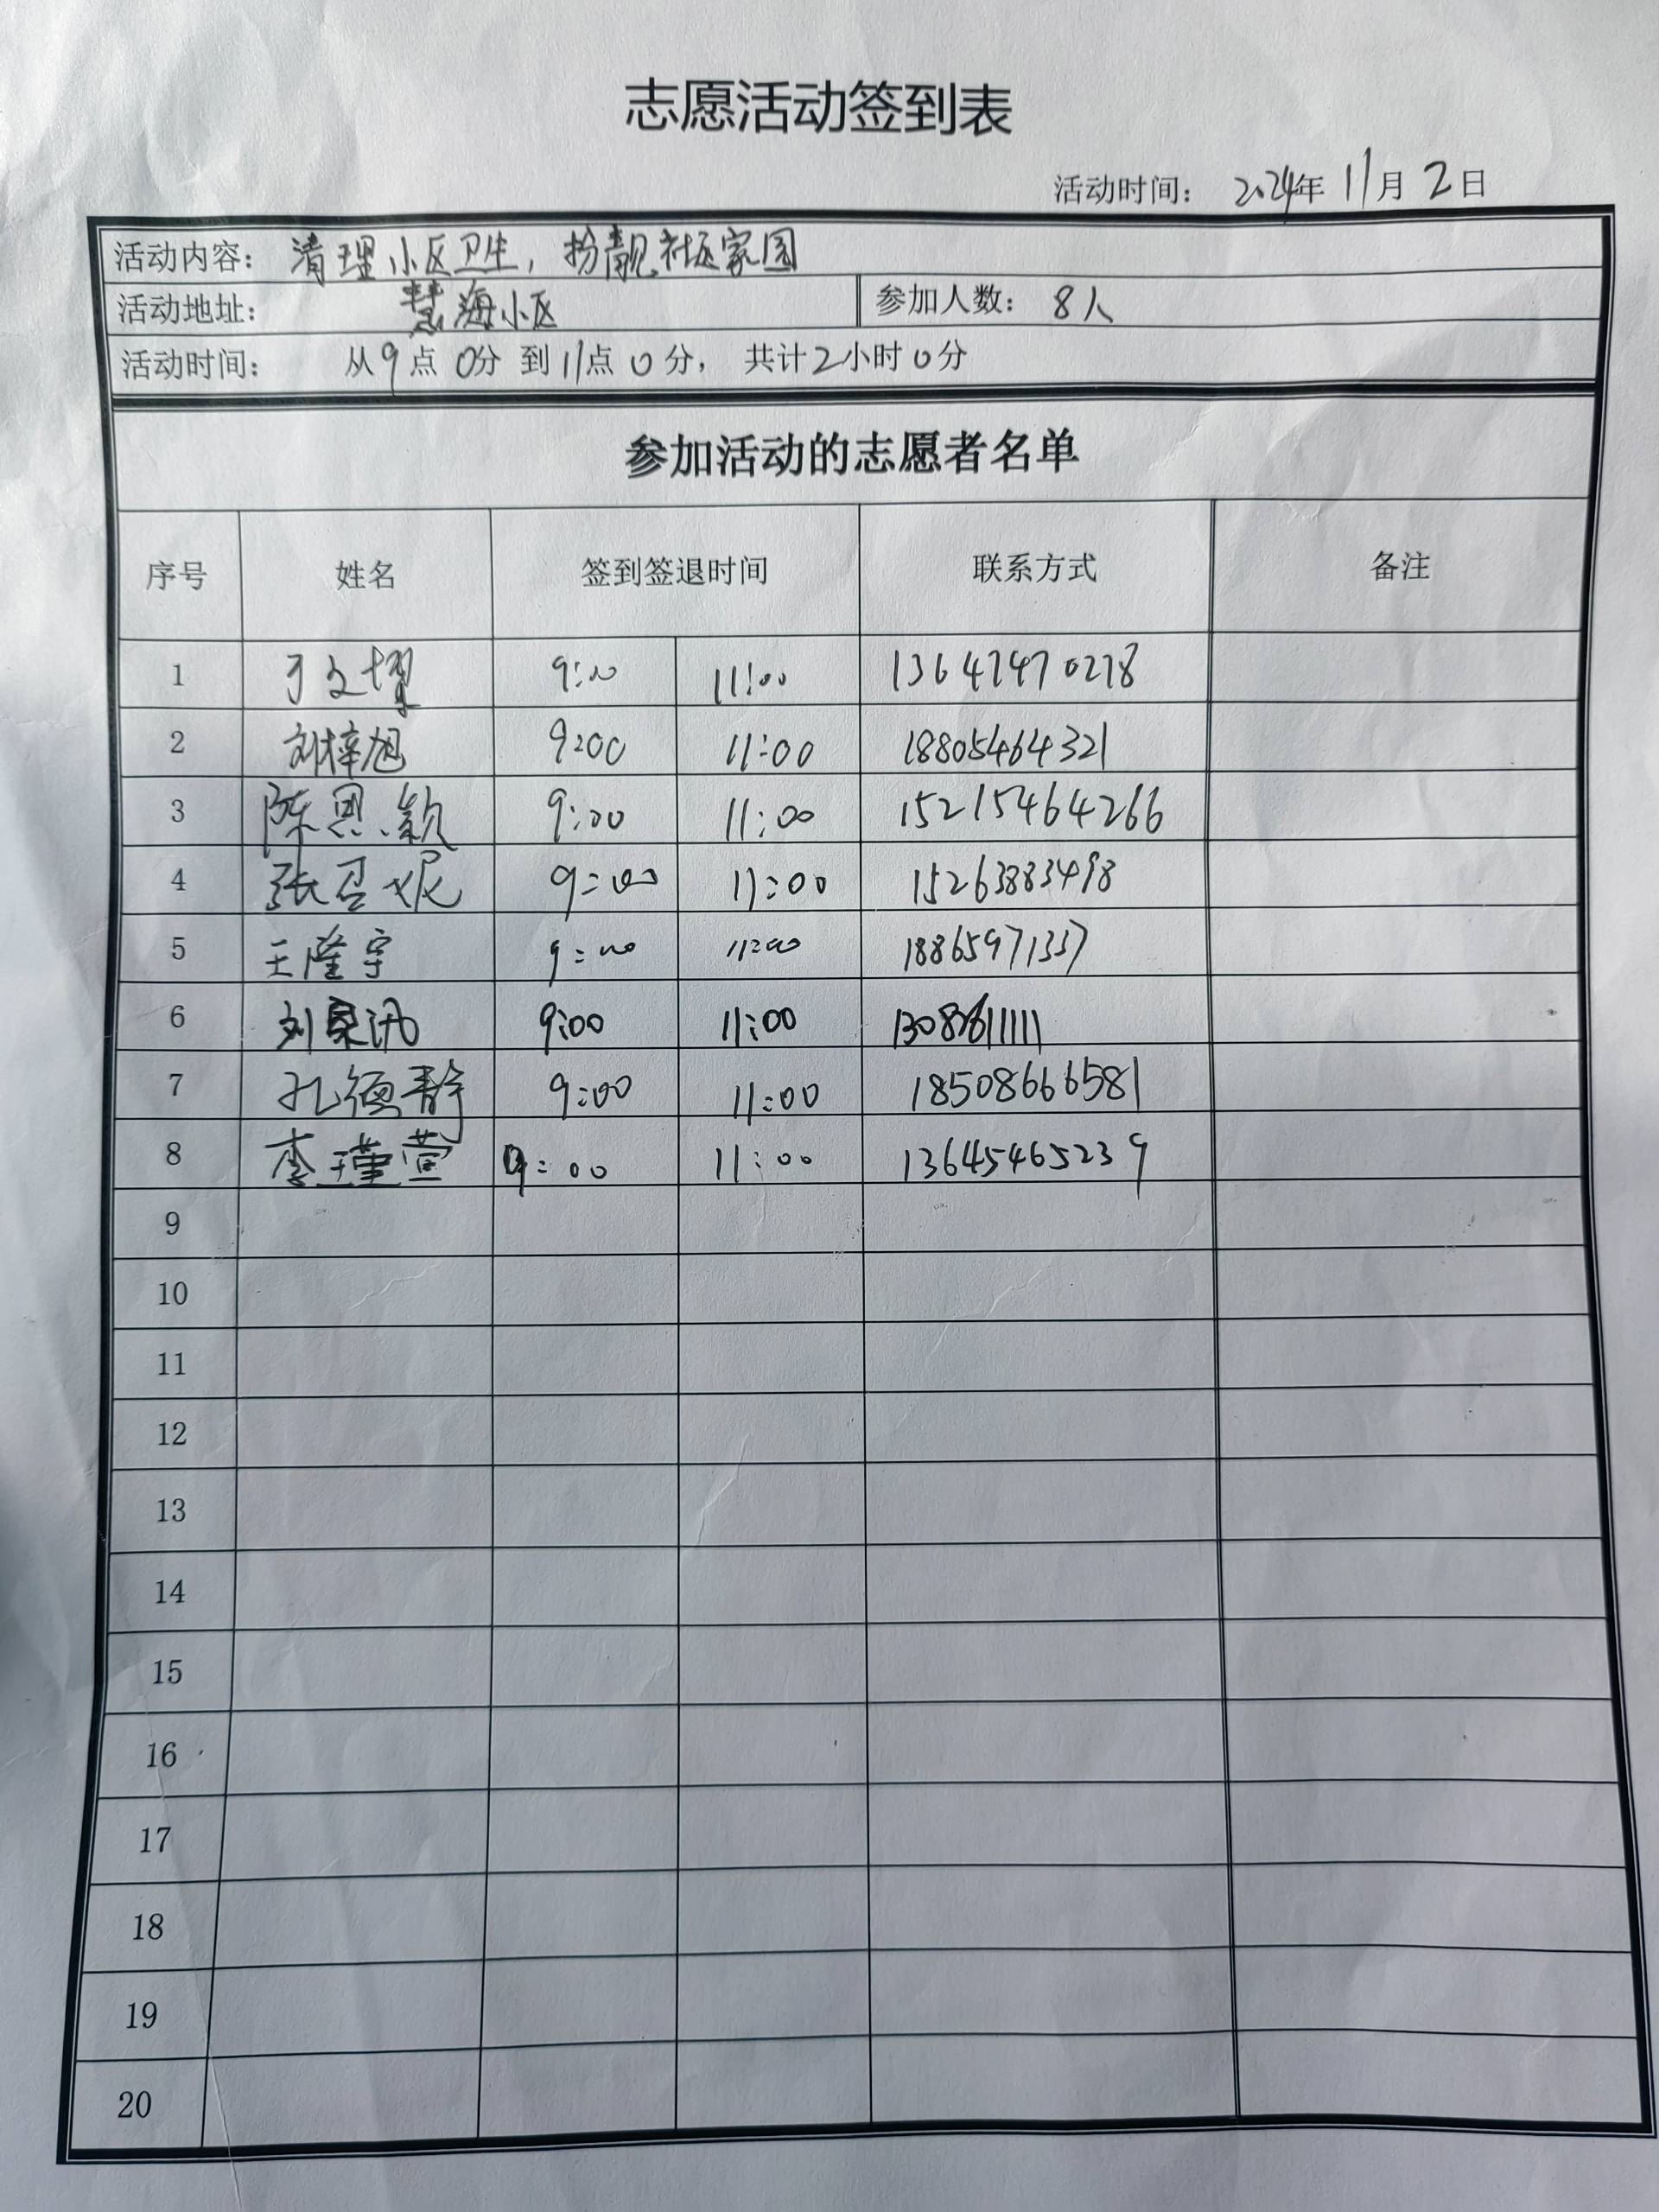 志愿活动签到表
活动时间: 2024年 11月 2日
活动内容: 清理小区卫生，扮靓社区家园
活动地址: 慧海小区 参加人数: 8人
活动时间: 从9点 0分 到11点 0分, 共计2小时0分
参加活动的志愿者名单
序号 姓名 签到签退时间 联系方式 备注
1 于文 9:00 11:00
2 刘梓旭 9:00 11:00 18805464321
3 陈思颖 9:00 11:00 15215464266
4 张召妮 9:00 11:00 15263883498
5 王隆宇 9:00 11:00
6 刘 9:00 11:00
7 孔德静 9:00 11:00 18508666581
8 李瑾萱 9:00 11:00 13645465239
9
10
11
12
13
14
15
16
17
18
19
20